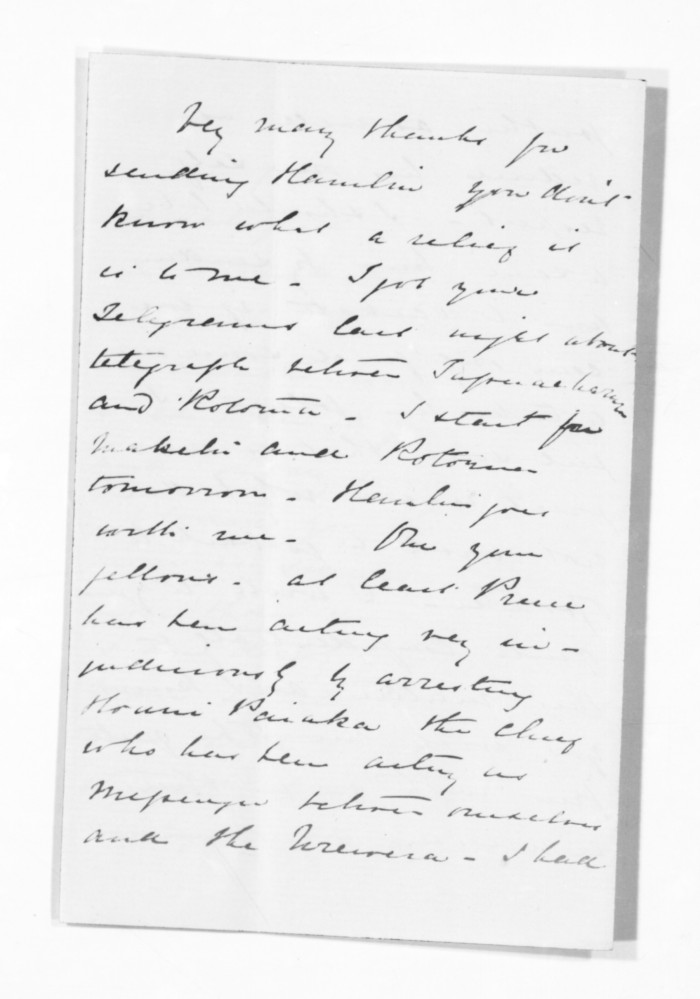 Very many thanks for
sending Hamlin you don't
know what a relief it
is to me - I got your
Telegrams last night about
telegraph between
and Rotorua - I start for
Maketu and Rotorua
tomorrow - Hamlin goes
with me - your
fellows - at least
has been acting very in-
judiciously by arresting
the chief
who has been acting as
Messenger between ourselves
and the Urewera - I had